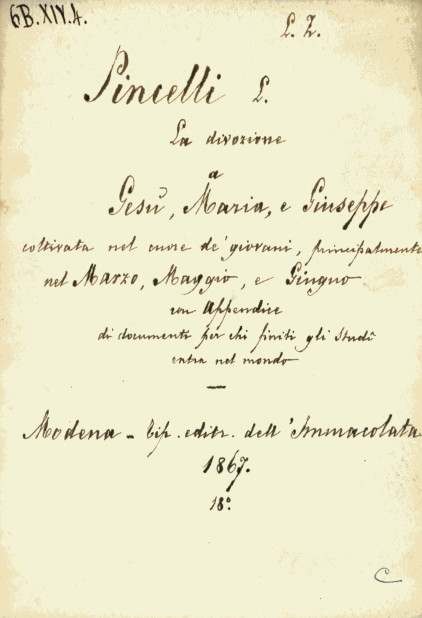 6B.XIV.4.
L. Z.
Pincelli L.
La divozione
a
Gesù, Maria, e Giuseppe
coltivata nel cuore de' giovani, principalmente
nel Marzo, Maggio, e Giugno
con Appendice
di documenti per chi finiti gli Studî
entra nel mondo
—
Modena - tip. editr. dell'Immacolata
1867.
18°.
C